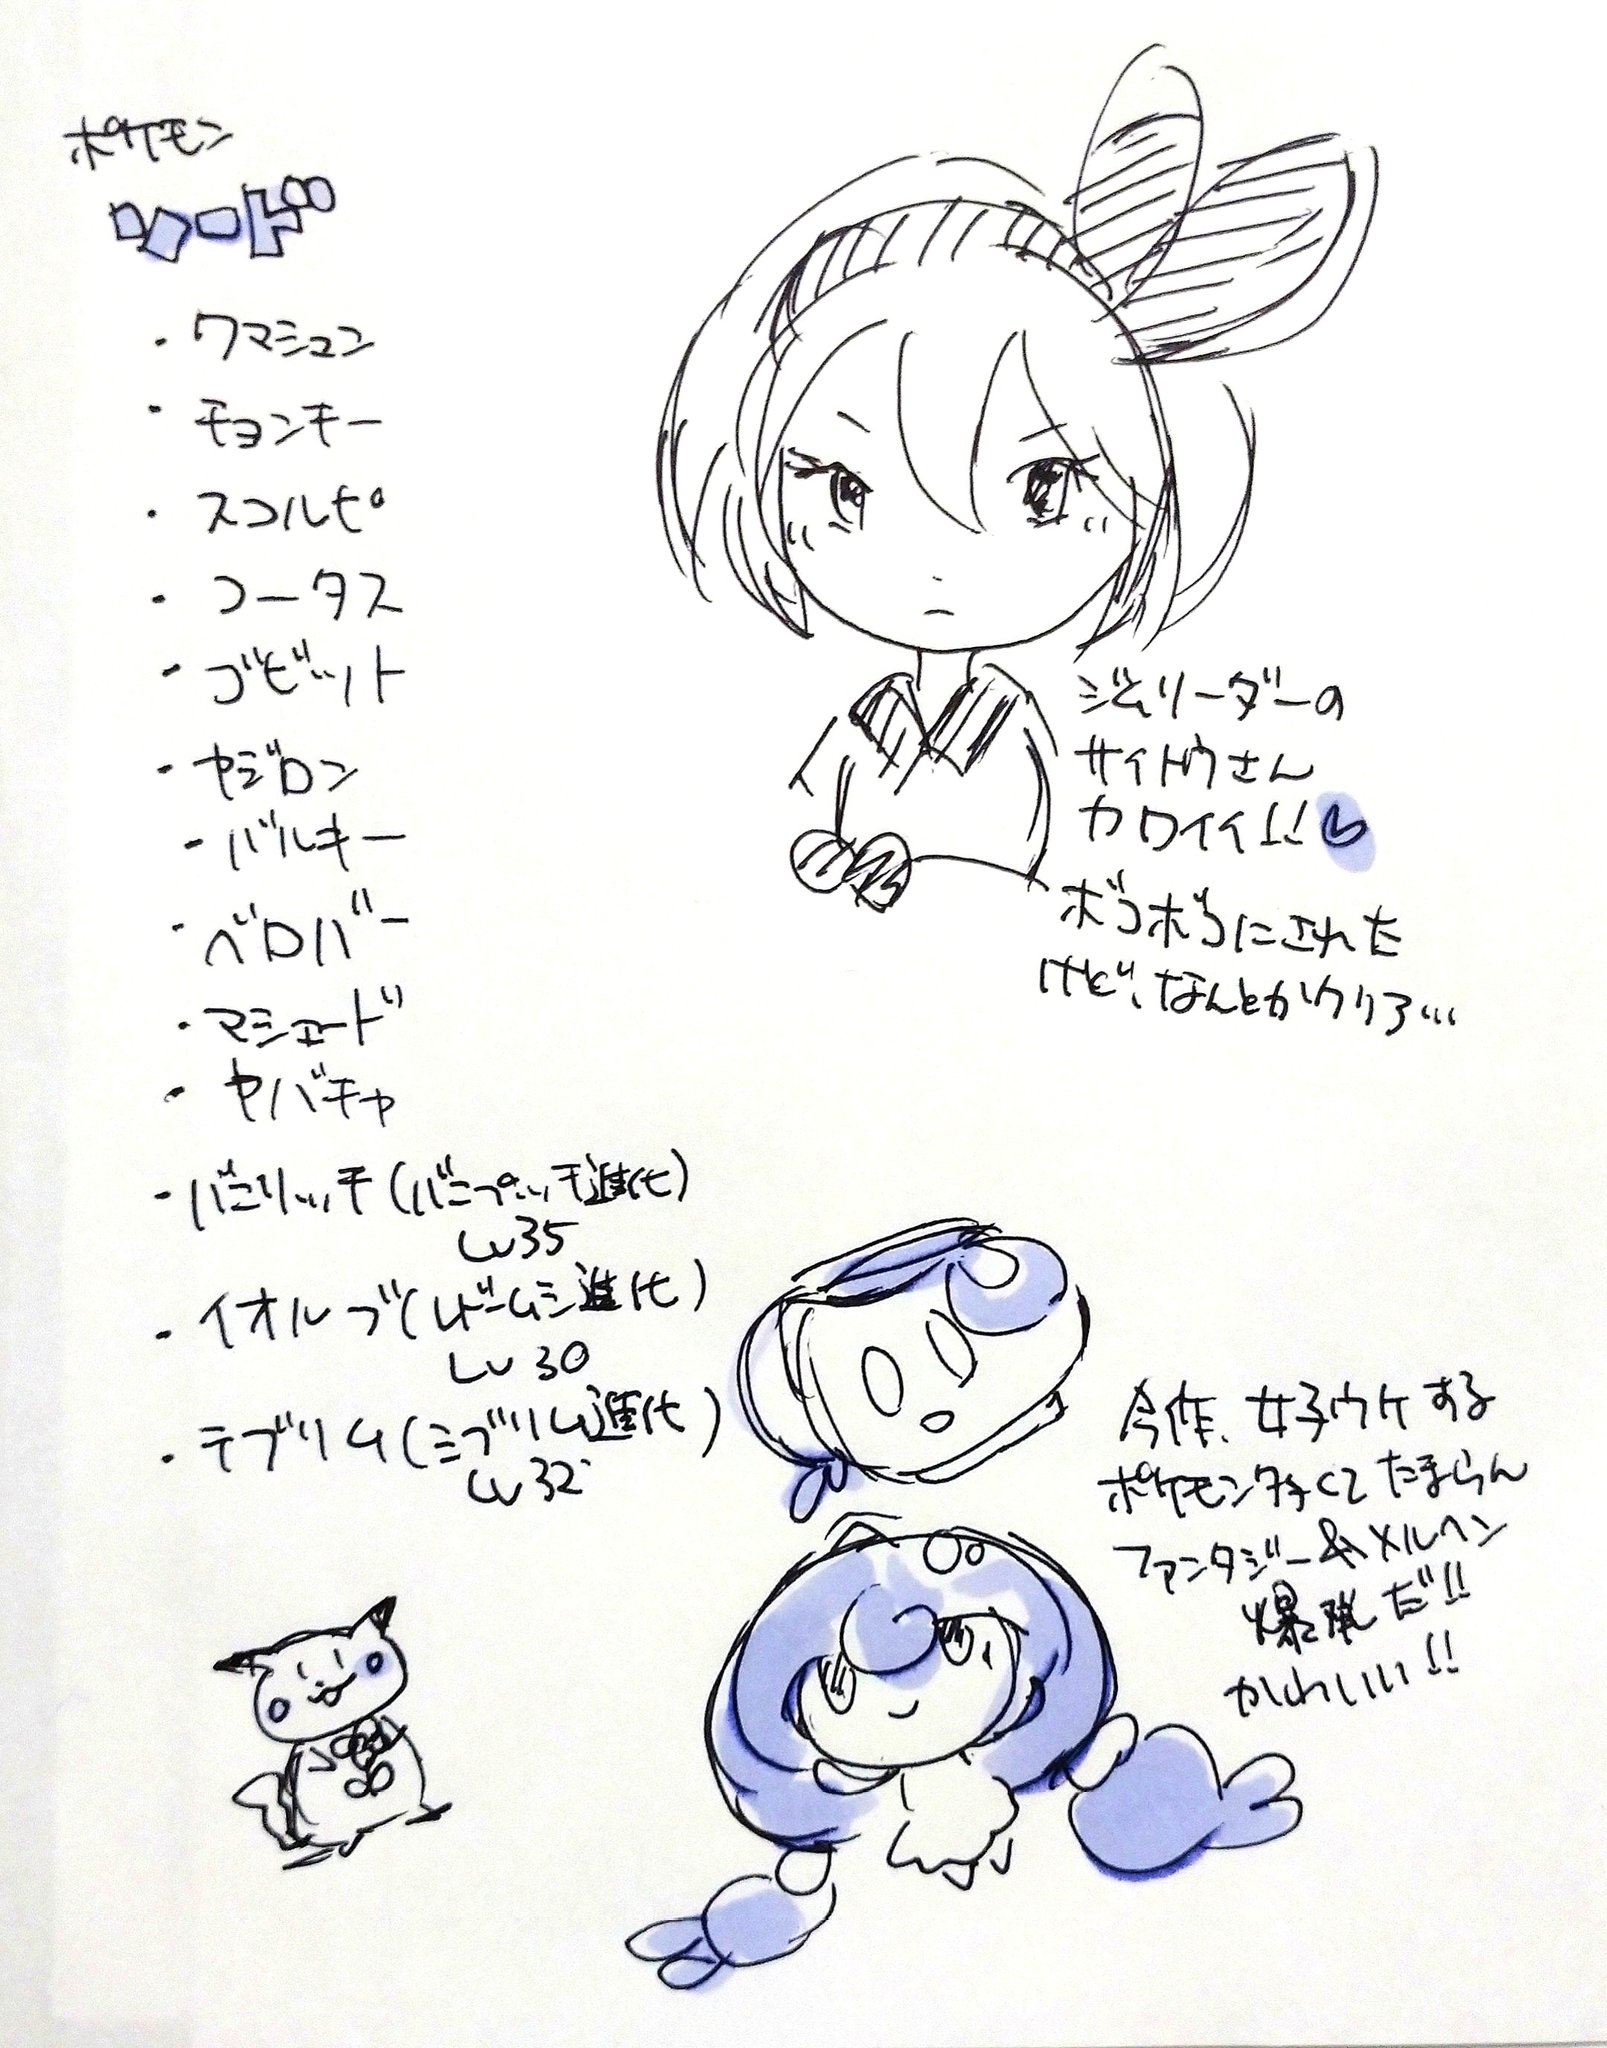 ポケモン
ソード
・クマシュン
・チョンチー
・スコルピ
・コータス
・ゴビット
・ヤジロン
・バルキー
・ベロバー
・マシェード
・ヤバチャ
・バニリッチ(バニプッチ進化)
Lv35
・イオルブ(レドームシ進化)
Lv30
・テブリム(ミブリム進化)
Lv32
ジムリーダーの
サイトウさん
カワイイ!!
ボコボコにされた
けど、なんとかクリア…
今作、女子ウケする
ポケモン多くてたまらん
ファンタジー&メルヘン
爆発だ!!
かわいい!!